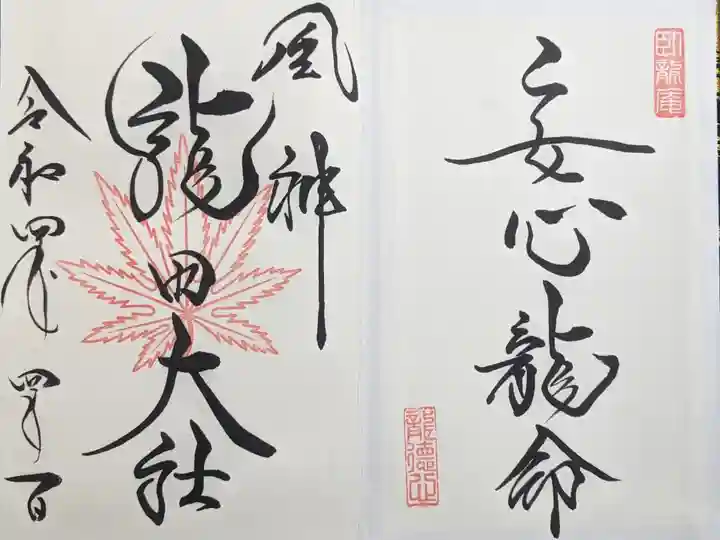 臥龍庵
妄心龍命
龍徳
風神
龍田大社
令和四年四月一日